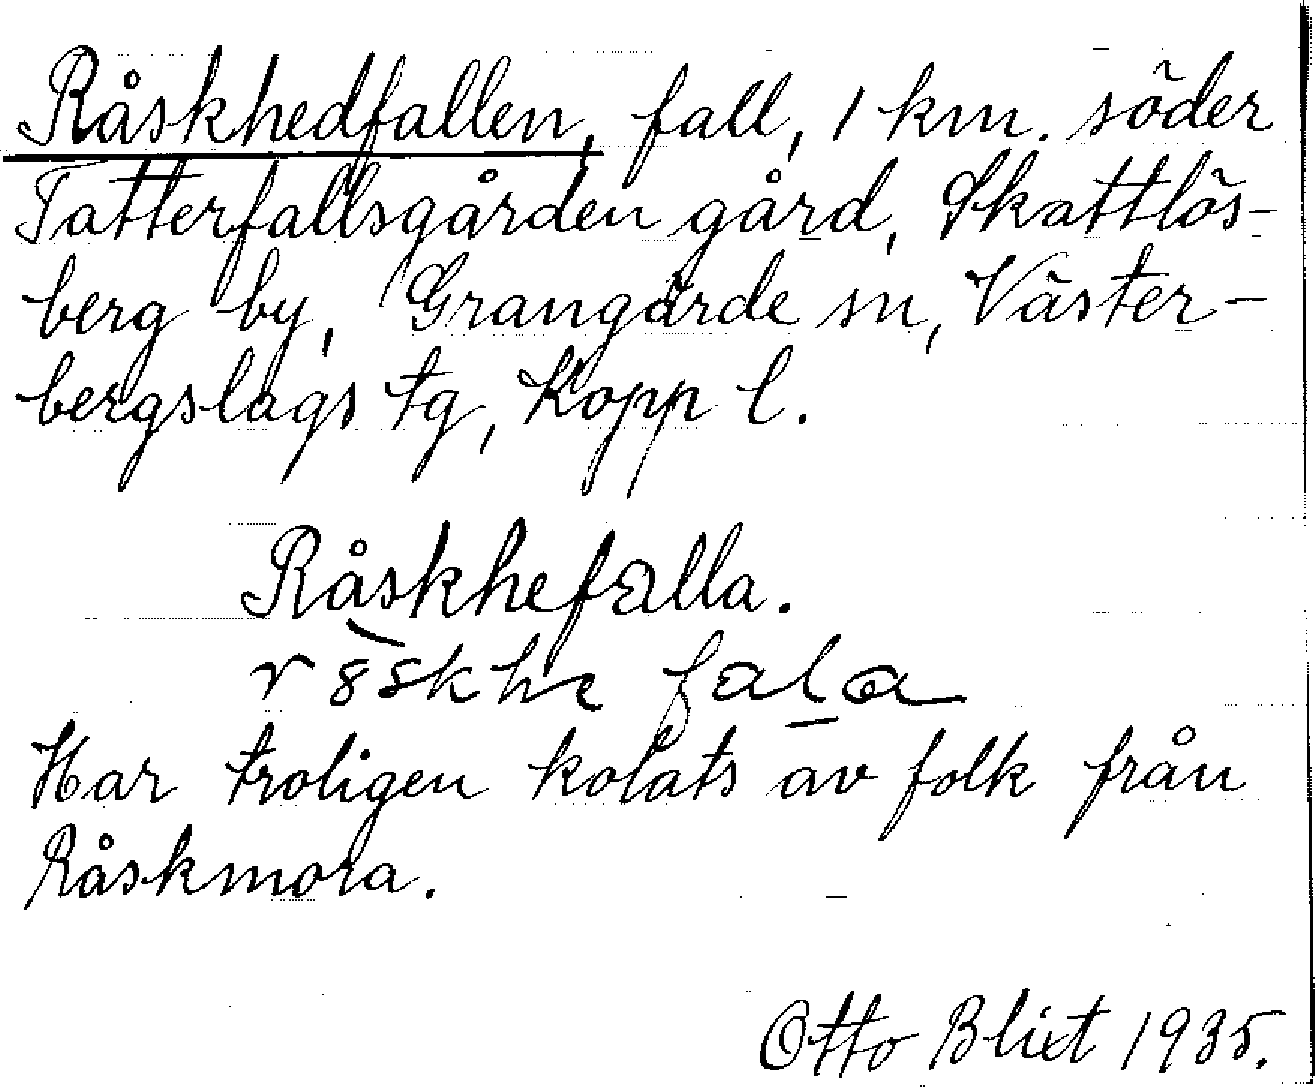 Råskhedfallen, fall, 1 km. söder
Tatterfallsgården gård, Skattlös-
berg by, Grangärde sn, Väster-
bergslags tg, Kopp l.
Råskhefalla.
Har troligen kolats av folk från
Råskmora.
Otto Blixt 1935.